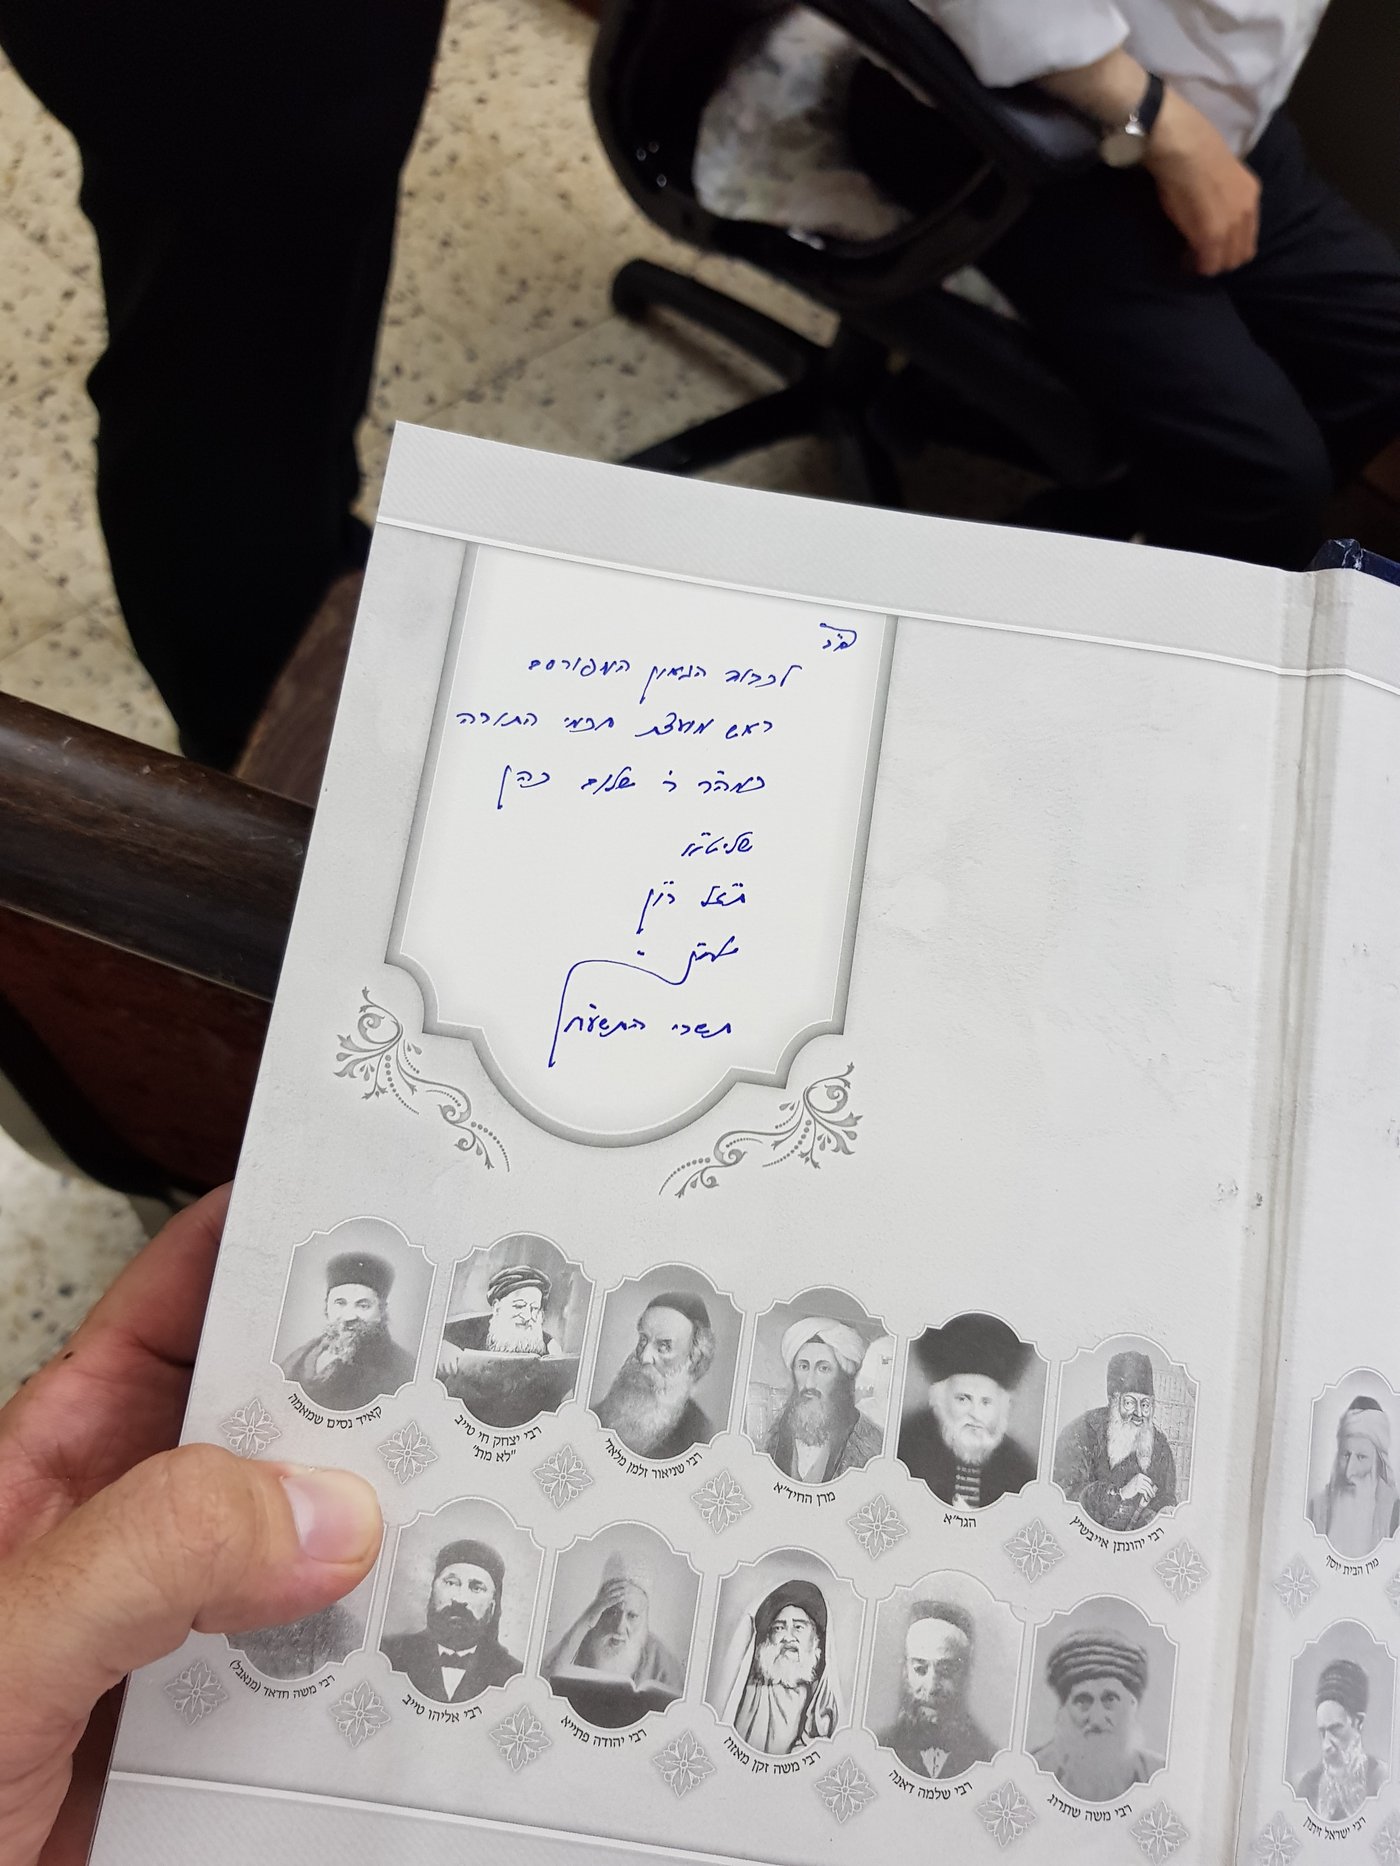 לכבוד הגאון המפורסם
ראש מועצת חכמי התורה
כמה״ר ר׳ שלום כהן
שליט״א
רון
תשרי התשע״ח
קאיד נסים שמאמה
רבי יצחק חי טייב
"לא מת"
רבי שניאור זלמן מלאדי
מרן החיד״א
הגר״א
רבי יהונתן אייבשיץ
רבי משה חדאד (מנאבל)
רבי אליהו טייב
רבי יהודה פתייא
רבי משה זקן מאזוז
רבי שלמה דאנה
רבי משה שתרוג
מרן הבית יוסף
רבי ישראל זיתון